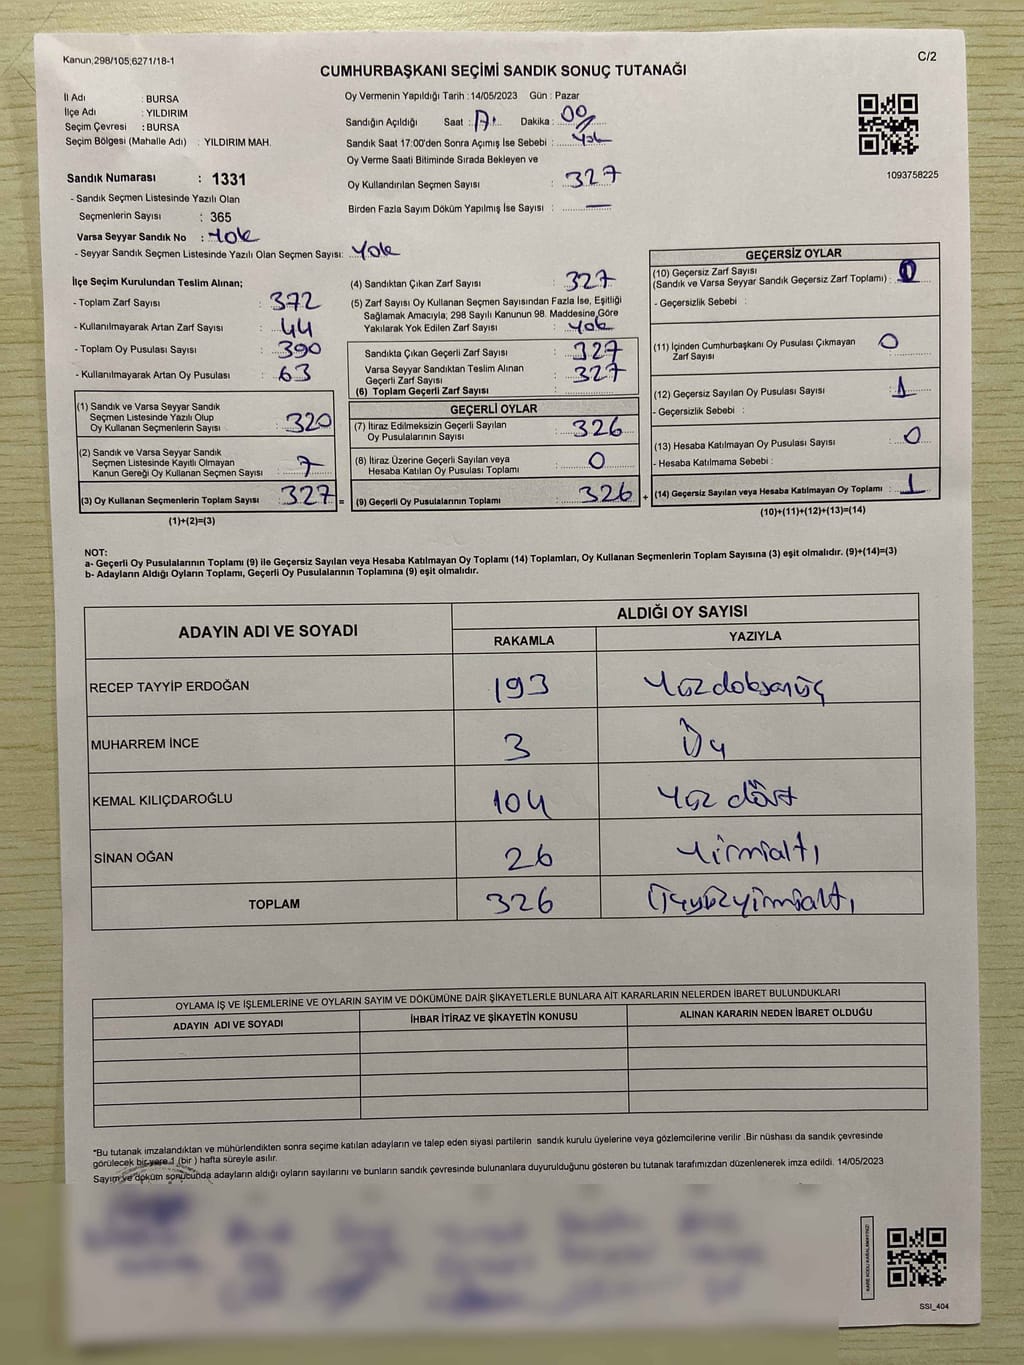 Kanun,298/105,6271/18-1
C/2
CUMHURBAŞKANI SEÇİMİ SANDIK SONUÇ TUTANAĞI
İl Adı : BURSA
İlçe Adı : YILDIRIM
Seçim Çevresi : BURSA
Seçim Bölgesi (Mahalle Adı) : YILDIRIM MAH.
Sandık Numarası : 1331
- Sandık Seçmen Listesinde Yazılı Olan
Seçmenlerin Sayısı : 365
Varsa Seyyar Sandık No : Yok
- Seyyar Sandık Seçmen Listesinde Yazılı Olan Seçmen Sayısı: Yok
Oy Vermenin Yapıldığı Tarih :14/05/2023 Gün : Pazar
Sandığın Açıldığı Saat : Dakika : 00
Sandık Saat 17:00'den Sonra Açımış İse Sebebi : Yok
Oy Verme Saati Bitiminde Sırada Bekleyen ve
Oy Kullandırılan Seçmen Sayısı : 327
Birden Fazla Sayım Döküm Yapılmış İse Sayısı : —
1093758225
İlçe Seçim Kurulundan Teslim Alınan;
- Toplam Zarf Sayısı : 372
- Kullanılmayarak Artan Zarf Sayısı : 44
- Toplam Oy Pusulası Sayısı : 390
- Kullanılmayarak Artan Oy Pusulası : 63
(1) Sandık ve Varsa Seyyar Sandık
Seçmen Listesinde Yazılı Olup
Oy Kullanan Seçmenlerin Sayısı 320
(2) Sandık ve Varsa Seyyar Sandık
Seçmen Listesinde Kayıtlı Olmayan
Kanun Gereği Oy Kullanan Seçmen Sayısı 7
(3) Oy Kullanan Seçmenlerin Toplam Sayısı 327 =
(1)+(2)=(3)
(4) Sandıktan Çıkan Zarf Sayısı : 327
(5) Zarf Sayısı Oy Kullanan Seçmen Sayısından Fazla İse, Eşitliği
Sağlamak Amacıyla; 298 Sayılı Kanunun 98. Maddesine Göre
Yakılarak Yok Edilen Zarf Sayısı : Yok
Sandıkta Çıkan Geçerli Zarf Sayısı : 327
Varsa Seyyar Sandıktan Teslim Alınan
Geçerli Zarf Sayısı : 327
(6) Toplam Geçerli Zarf Sayısı
GEÇERLİ OYLAR
(7) İtiraz Edilmeksizin Geçerli Sayılan
Oy Pusulalarının Sayısı : 326
(8) İtiraz Üzerine Geçerli Sayılan veya
Hesaba Katılan Oy Pusulası Toplamı : 0
(9) Geçerli Oy Pusulalarının Toplamı : 326 +
GEÇERSİZ OYLAR
(10) Geçersiz Zarf Sayısı
(Sandık ve Varsa Seyyar Sandık Geçersiz Zarf Toplamı) : 0
- Geçersizlik Sebebi :
(11) İçinden Cumhurbaşkanı Oy Pusulası Çıkmayan
Zarf Sayısı : 0
(12) Geçersiz Sayılan Oy Pusulası Sayısı : 1
- Geçersizlik Sebebi :
(13) Hesaba Katılmayan Oy Pusulası Sayısı : 0
- Hesaba Katılmama Sebebi :
(14) Geçersiz Sayılan veya Hesaba Katılmayan Oy Toplamı : 1
(10)+(11)+(12)+(13)=(14)
NOT:
a- Geçerli Oy Pusulalarının Toplamı (9) ile Geçersiz Sayılan veya Hesaba Katılmayan Oy Toplamı (14) Toplamları, Oy Kullanan Seçmenlerin Toplam Sayısına (3) eşit olmalıdır. (9)+(14)=(3)
b- Adayların Aldığı Oyların Toplamı, Geçerli Oy Pusulalarının Toplamına (9) eşit olmalıdır.
ADAYIN ADI VE SOYADI
ALDIĞI OY SAYISI
RAKAMLA YAZIYLA
RECEP TAYYİP ERDOĞAN 193 Yüzdoksanüç
MUHARREM İNCE 3 Üç
KEMAL KILIÇDAROĞLU 104 Yüz dört
SİNAN OĞAN 26 Yirmialtı
TOPLAM 326 Üçyüzyirmialtı
OYLAMA İŞ VE İŞLEMLERİNE VE OYLARIN SAYIM VE DÖKÜMÜNE DAİR ŞİKAYETLERLE BUNLARA AİT KARARLARIN NELERDEN İBARET BULUNDUKLARI
ADAYIN ADI VE SOYADI İHBAR İTİRAZ VE ŞİKAYETİN KONUSU ALINAN KARARIN NEDEN İBARET OLDUĞU
"Bu tutanak imzalandıktan ve mühürlendikten sonra seçime katılan adayların ve talep eden siyasi partilerin sandık kurulu üyelerine veya gözlemcilerine verilir .Bir nüshası da sandık çevresinde
görülecek bir yere 1 (bir ) hafta süreyle asılır.
Sayım ve döküm sonucunda adayların aldığı oyların sayılarını ve bunların sandık çevresinde bulunanlara duyurulduğunu gösteren bu tutanak tarafımızdan düzenlenerek imza edildi. 14/05/2023
SSI_404